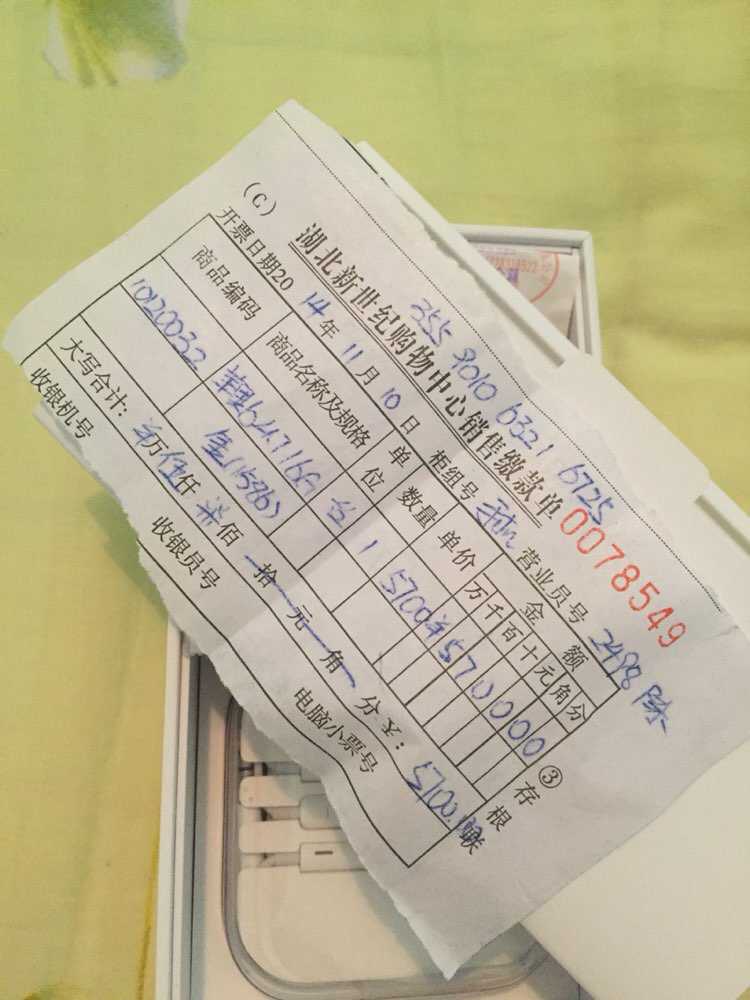 (C)
355 9010 6321 6725
湖北新世纪购物中心销售缴款单
0078549
开票日期20 14 年 11 月 10 日 柜组号 营业员号 2498
商品编码 商品名称及规格 单位 数量 单价 金额
万 千 百 十 元 角 分
10120032 台 1 5700 ¥570000
金(1586)
大写合计: 万 伍 仟 柒 佰 拾 元 角 分 ¥: 5700.00
收银机号 收银员号 电脑小票号
③存根联